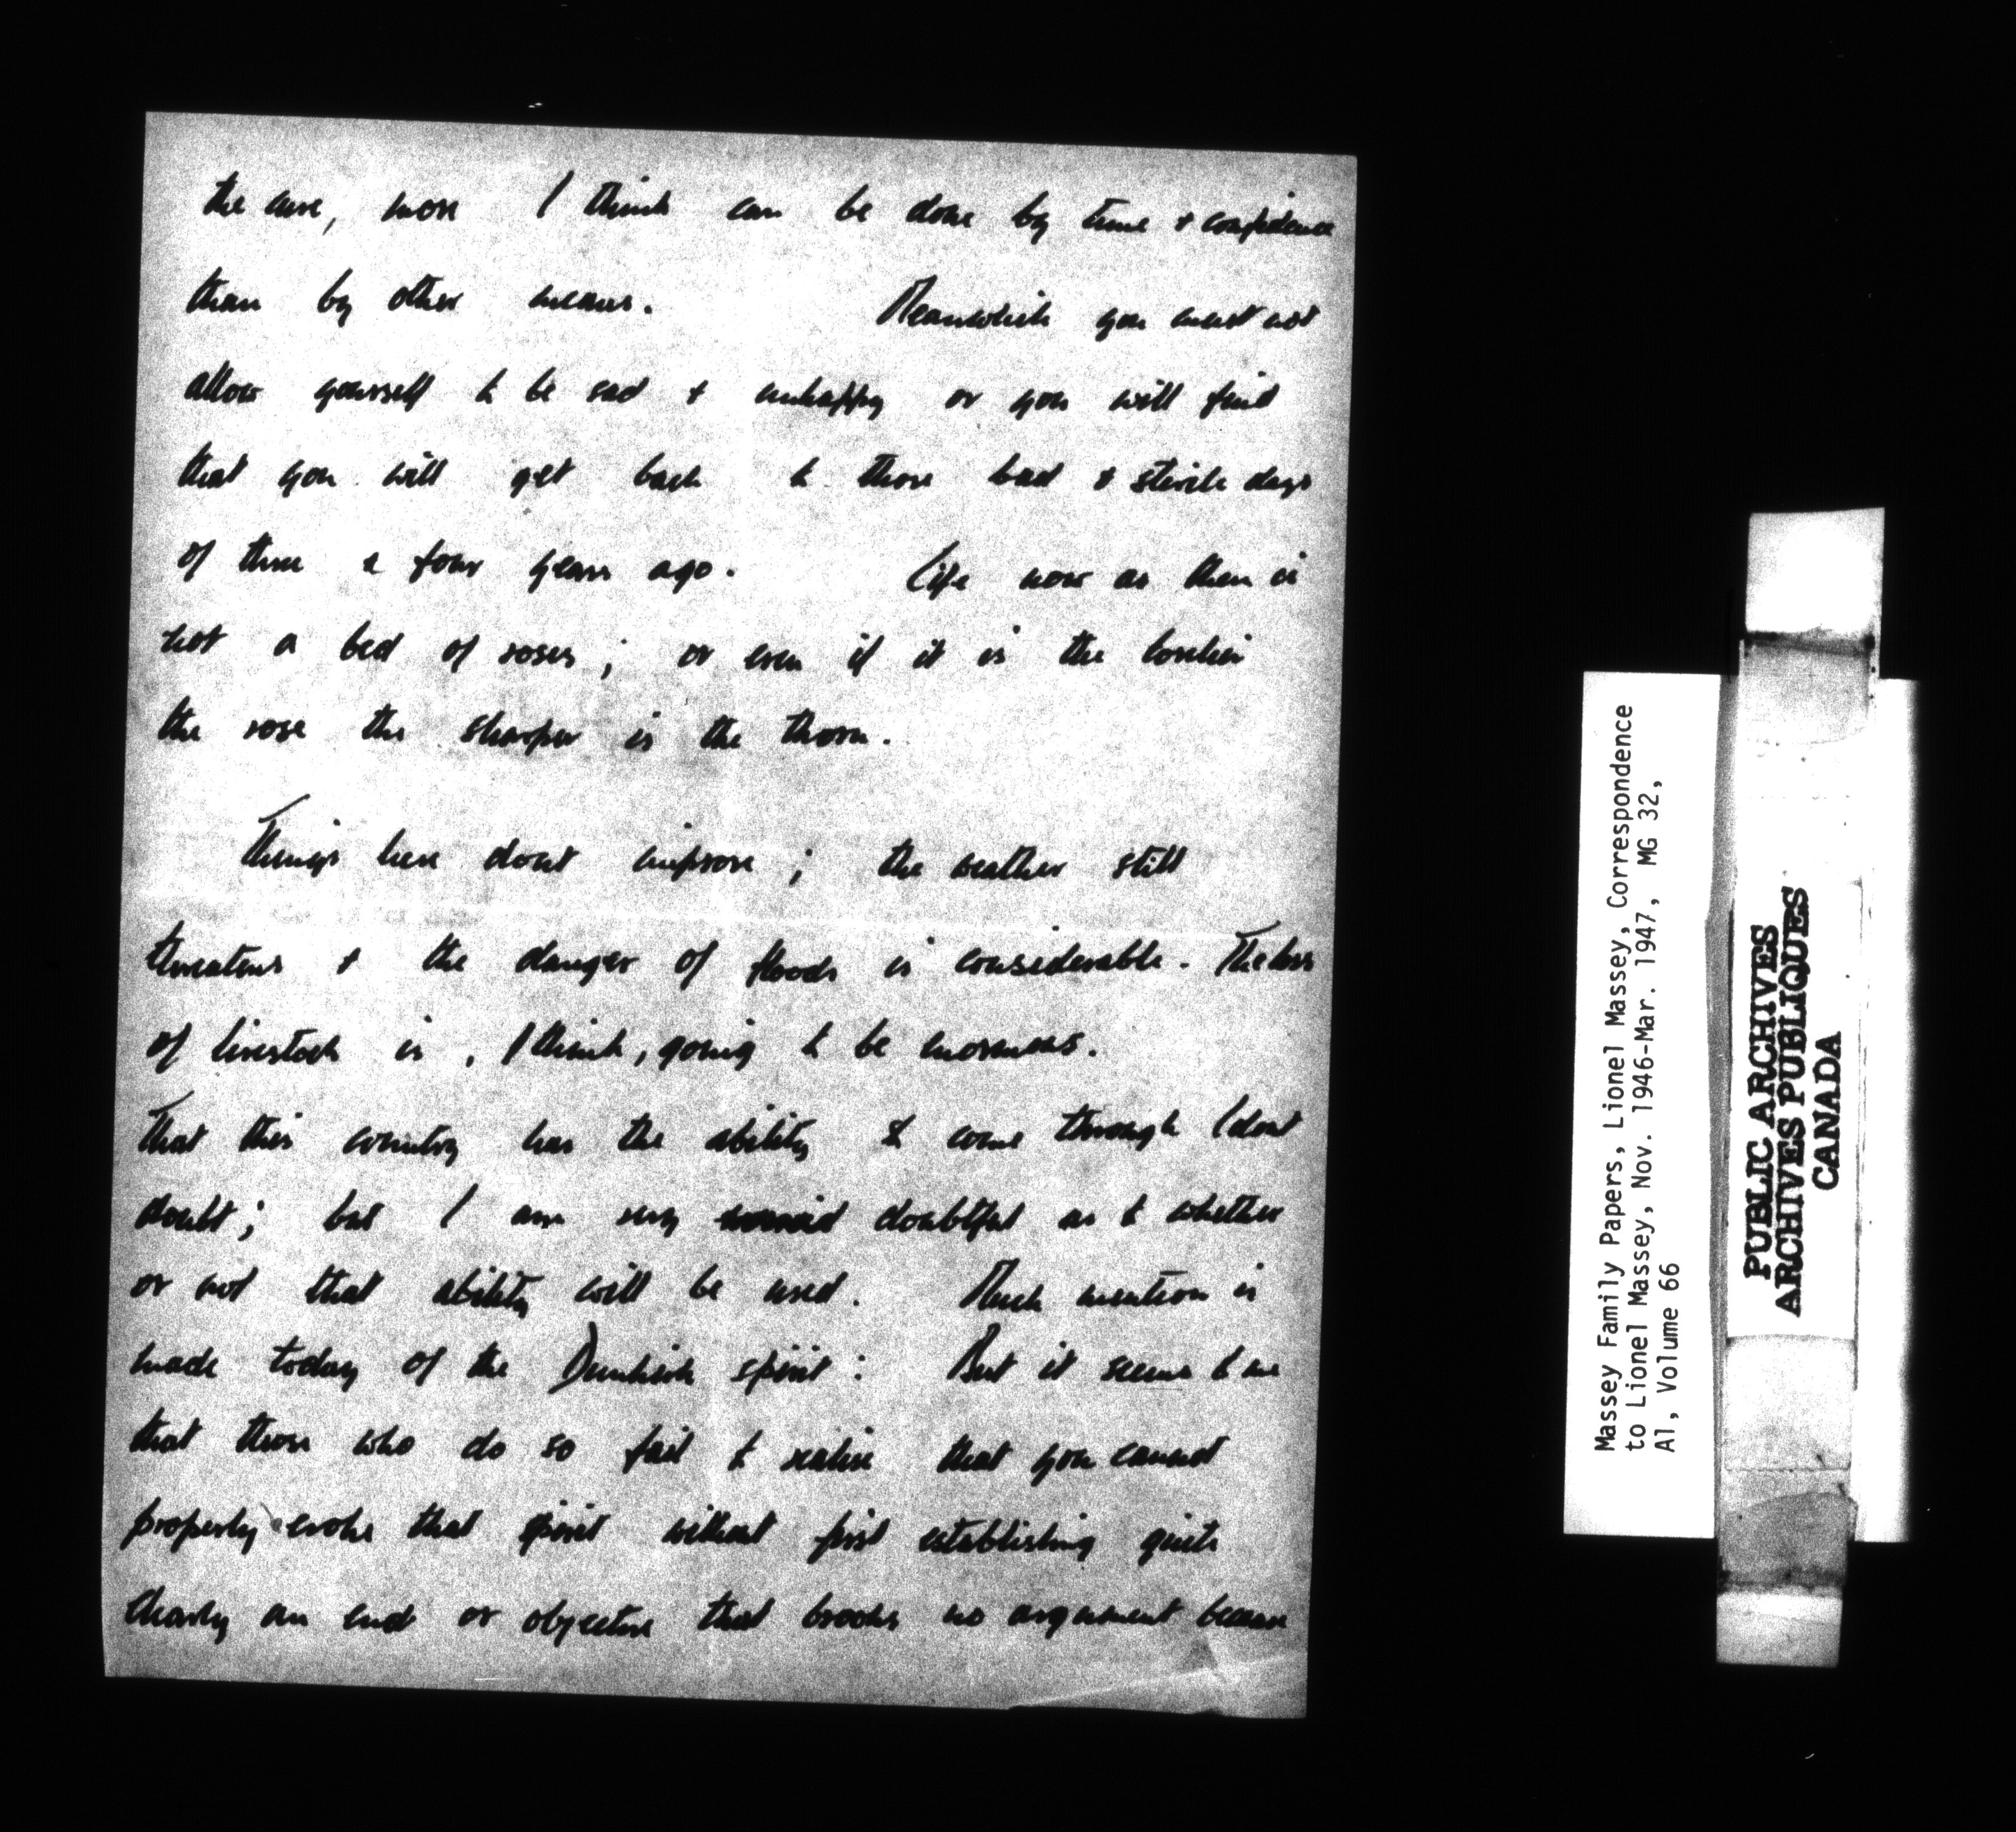 the cure, more I think can be done by time & confidence
than by other means. Meanwhile you must not
allow yourself to be sad & unhappy or you will find
that you will get back to those bad & sterile days
of three & four years ago. Life now as then is
not a bed of roses; or even if it is the lovelier
the rose the sharper is the thorn.
Things here dont improve; the weather still
threatens & the danger of floods is considerable. The loss
of livestock is, I think, going to be enormous.
That this country has the ability to come through I dont
doubt; but I am very doubtful as to whether
or not that ability will be used. Much mention is
made today of the Dunkirk spirit: But it seems to me
that those who do so fail to realise that you cannot
properly evoke that spirit without first establishing quite
clearly an end or objective that brooks no argument because
Massey Family Papers, Lionel Massey, Correspondence
to Lionel Massey, Nov. 1946-Mar. 1947, MG 32,
A1, Volume 66
PUBLIC ARCHIVES
ARCHIVES PUBLIQUES
CANADA